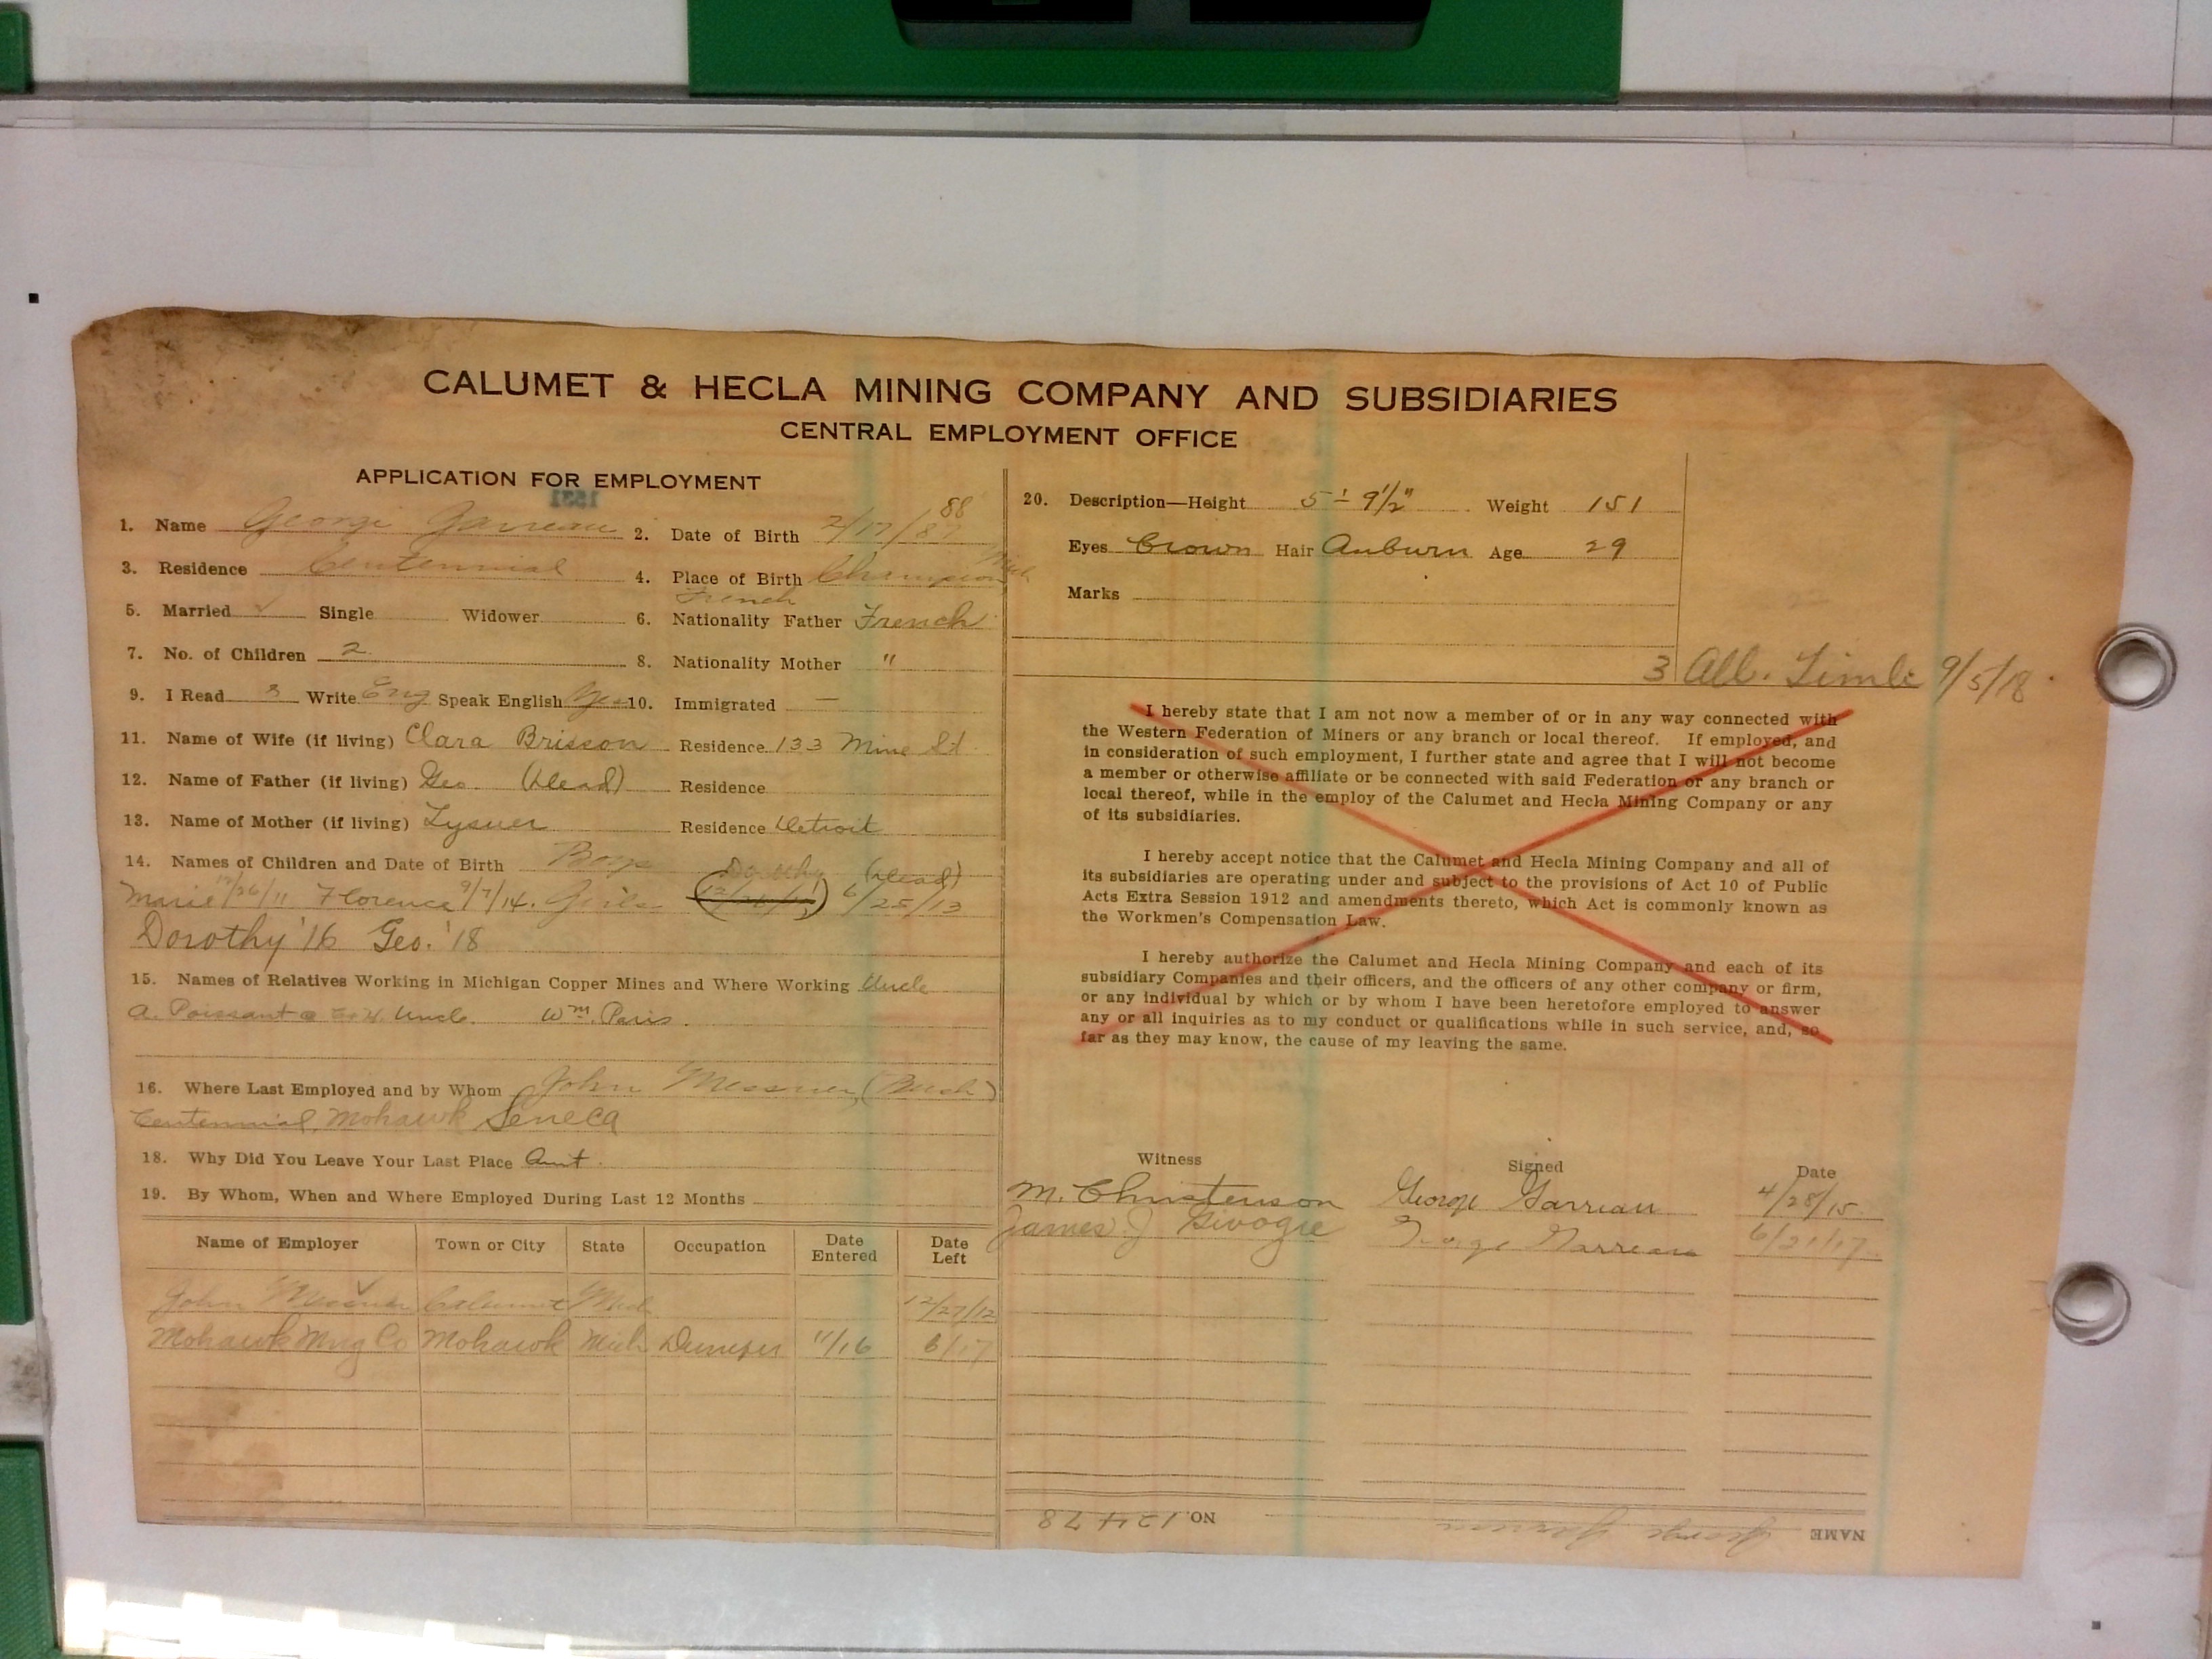 CALUMET & HECLA MINING COMPANY AND SUBSIDIARIES
CENTRAL EMPLOYMENT OFFICE
APPLICATION FOR EMPLOYMENT
1. Name George Garreau 2. Date of Birth 2/17/87 88
3. Residence Centennial 4. Place of Birth Champion Mich
5. Married ✓ Single Widower 6. Nationality Father French
French
7. No. of Children 2 8. Nationality Mother "
9. I Read & Write Eng Speak English Yes 10. Immigrated —
11. Name of Wife (if living) Clara Brisson Residence 133 Mine St
12. Name of Father (if living) Geo. (Dead) Residence
13. Name of Mother (if living) Residence Detroit
14. Names of Children and Date of Birth Boys Dorothy (Dead)
Marie 12/26/11 Florence 9/7/14. Girls 6/25/13
Dorothy '16 Geo. '18
15. Names of Relatives Working in Michigan Copper Mines and Where Working Uncle
A. Poissant @ C&H. Uncle. Wm. Paris.
16. Where Last Employed and by Whom John Messner (Bush)
Centennial, Mohawk Seneca
18. Why Did You Leave Your Last Place Quit.
19. By Whom, When and Where Employed During Last 12 Months
Name of Employer Town or City State Occupation Date Entered Date Left
John Messner Calumet Mich 12/27/12
Mohawk Mng Co Mohawk Mich 11/16 6/17
20. Description—Height 5' - 9½" Weight 151
Eyes Brown Hair Auburn Age 29
Marks
3 All. 9/5/18
I hereby state that I am not now a member of or in any way connected with
the Western Federation of Miners or any branch or local thereof. If employed, and
in consideration of such employment, I further state and agree that I will not become
a member or otherwise affiliate or be connected with said Federation or any branch or
local thereof, while in the employ of the Calumet and Hecla Mining Company or any
of its subsidiaries.
I hereby accept notice that the Calumet and Hecla Mining Company and all of
its subsidiaries are operating under and subject to the provisions of Act 10 of Public
Acts Extra Session 1912 and amendments thereto, which Act is commonly known as
the Workmen's Compensation Law.
I hereby authorize the Calumet and Hecla Mining Company and each of its
subsidiary Companies and their officers, and the officers of any other company or firm,
or any individual by which or by whom I have been heretofore employed to answer
any or all inquiries as to my conduct or qualifications while in such service, and, so
far as they may know, the cause of my leaving the same.
Witness Signed Date
M. Christenson George Garreau 4/28/15
James J George Garreau 6/21/17
NAME George Garreau NO. 12478